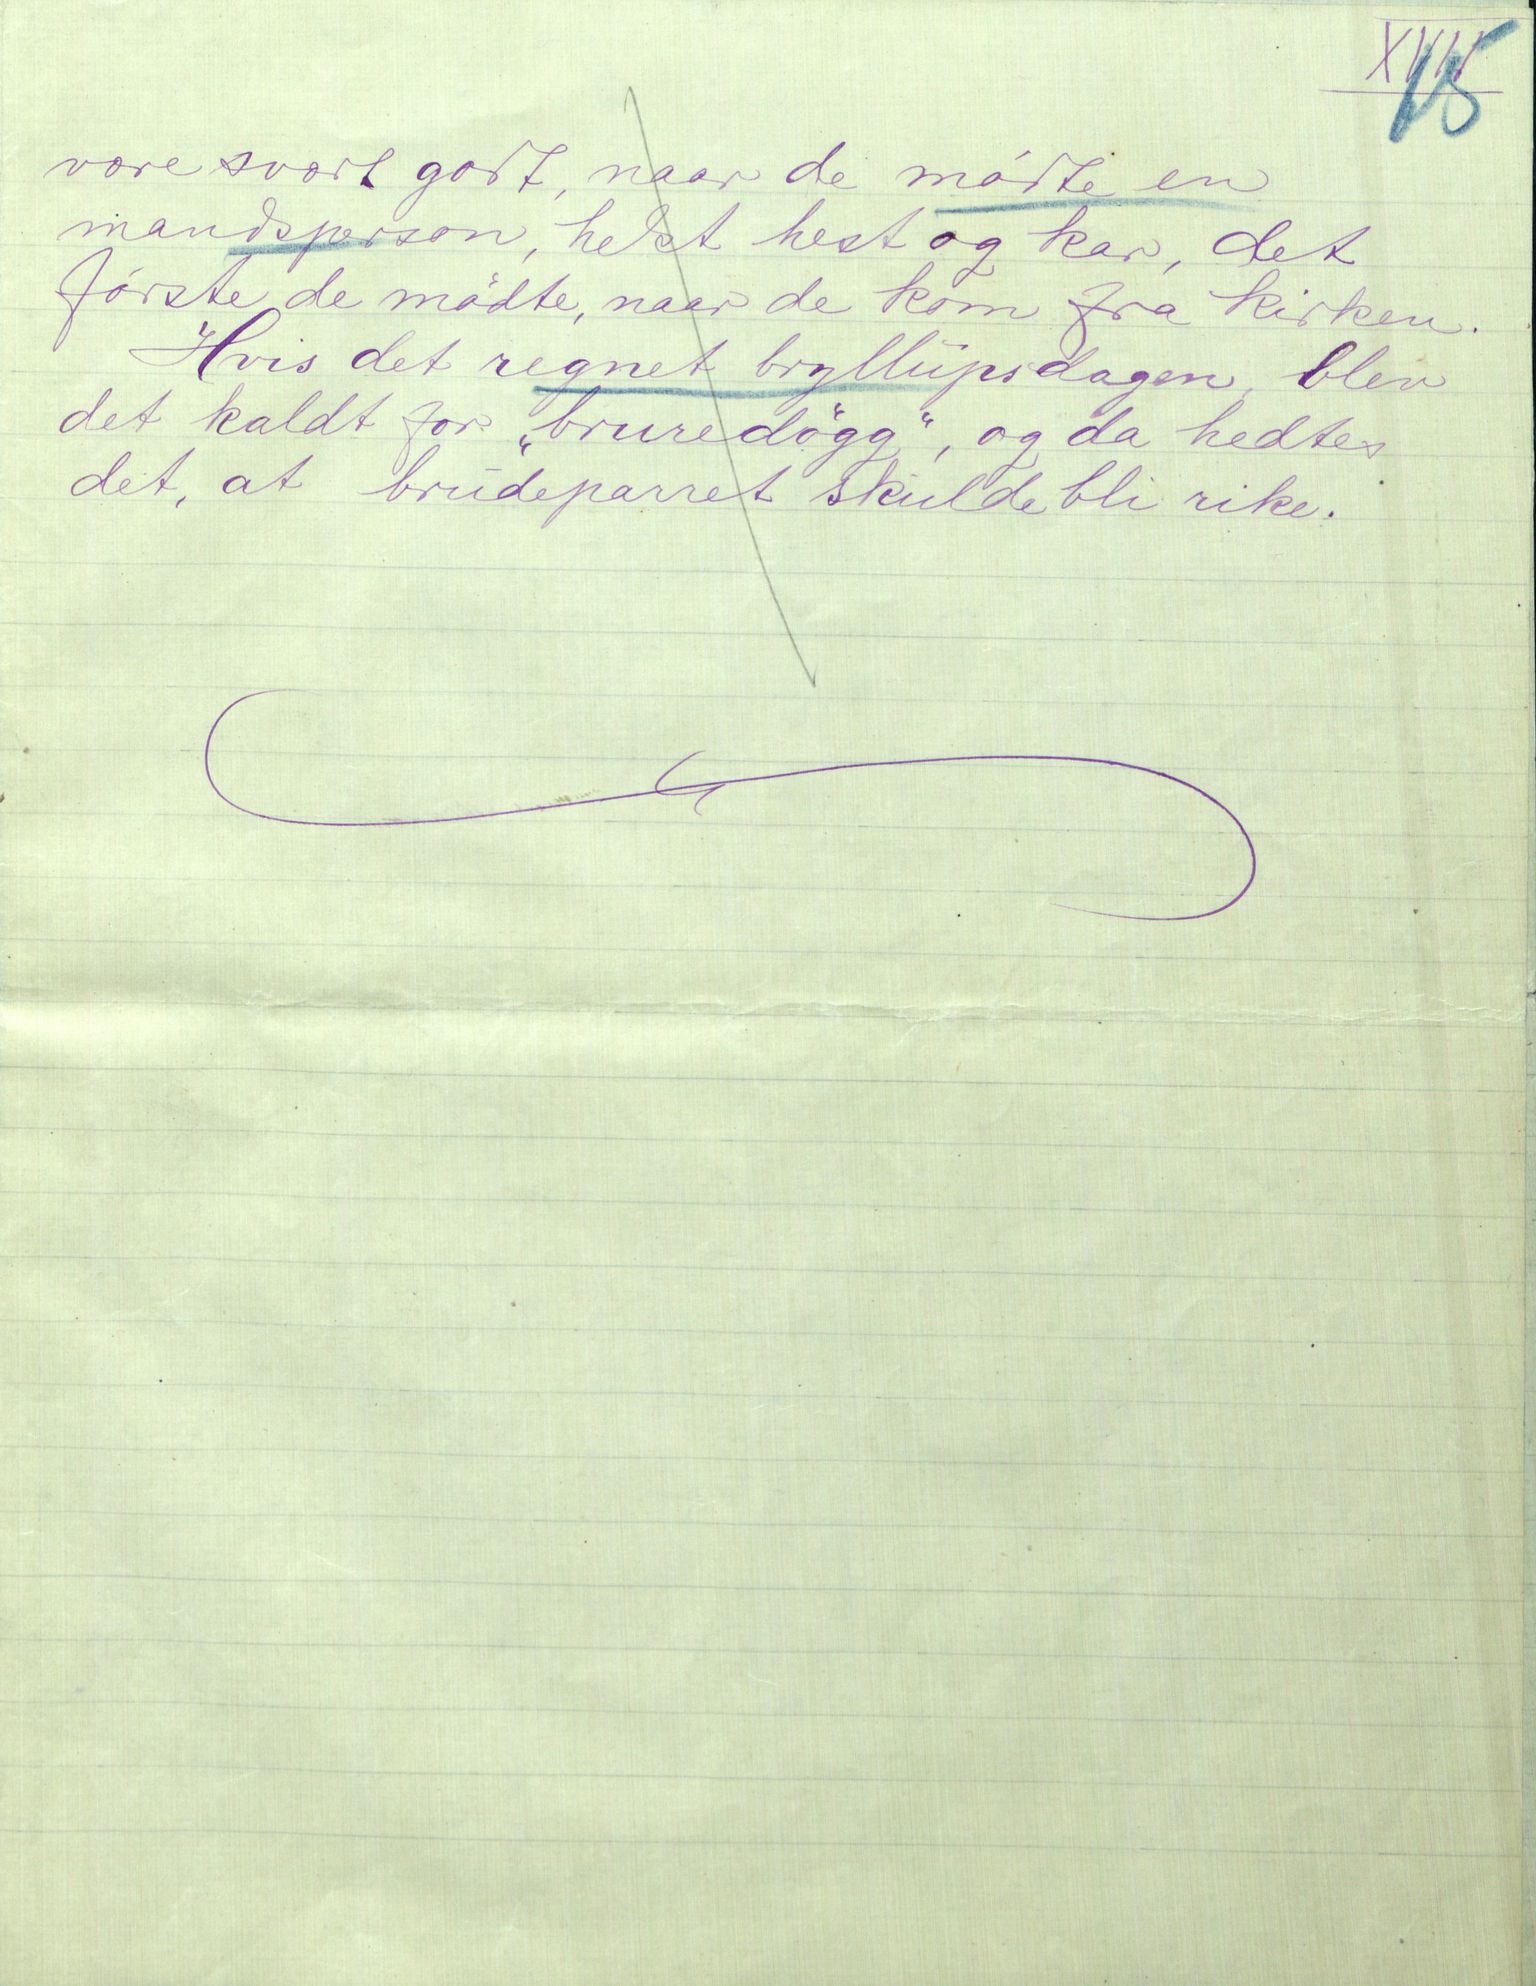 15
være svært godt, naar de mødte en
mandsperson, helst hest og kar, det
første de mødte, naar de kom fra kirken.
Hvis det regnet bryllupsdagen, blev
det kaldt for „bruredøgg“, og da hedtes
det, at brudeparret skulde bli rike.